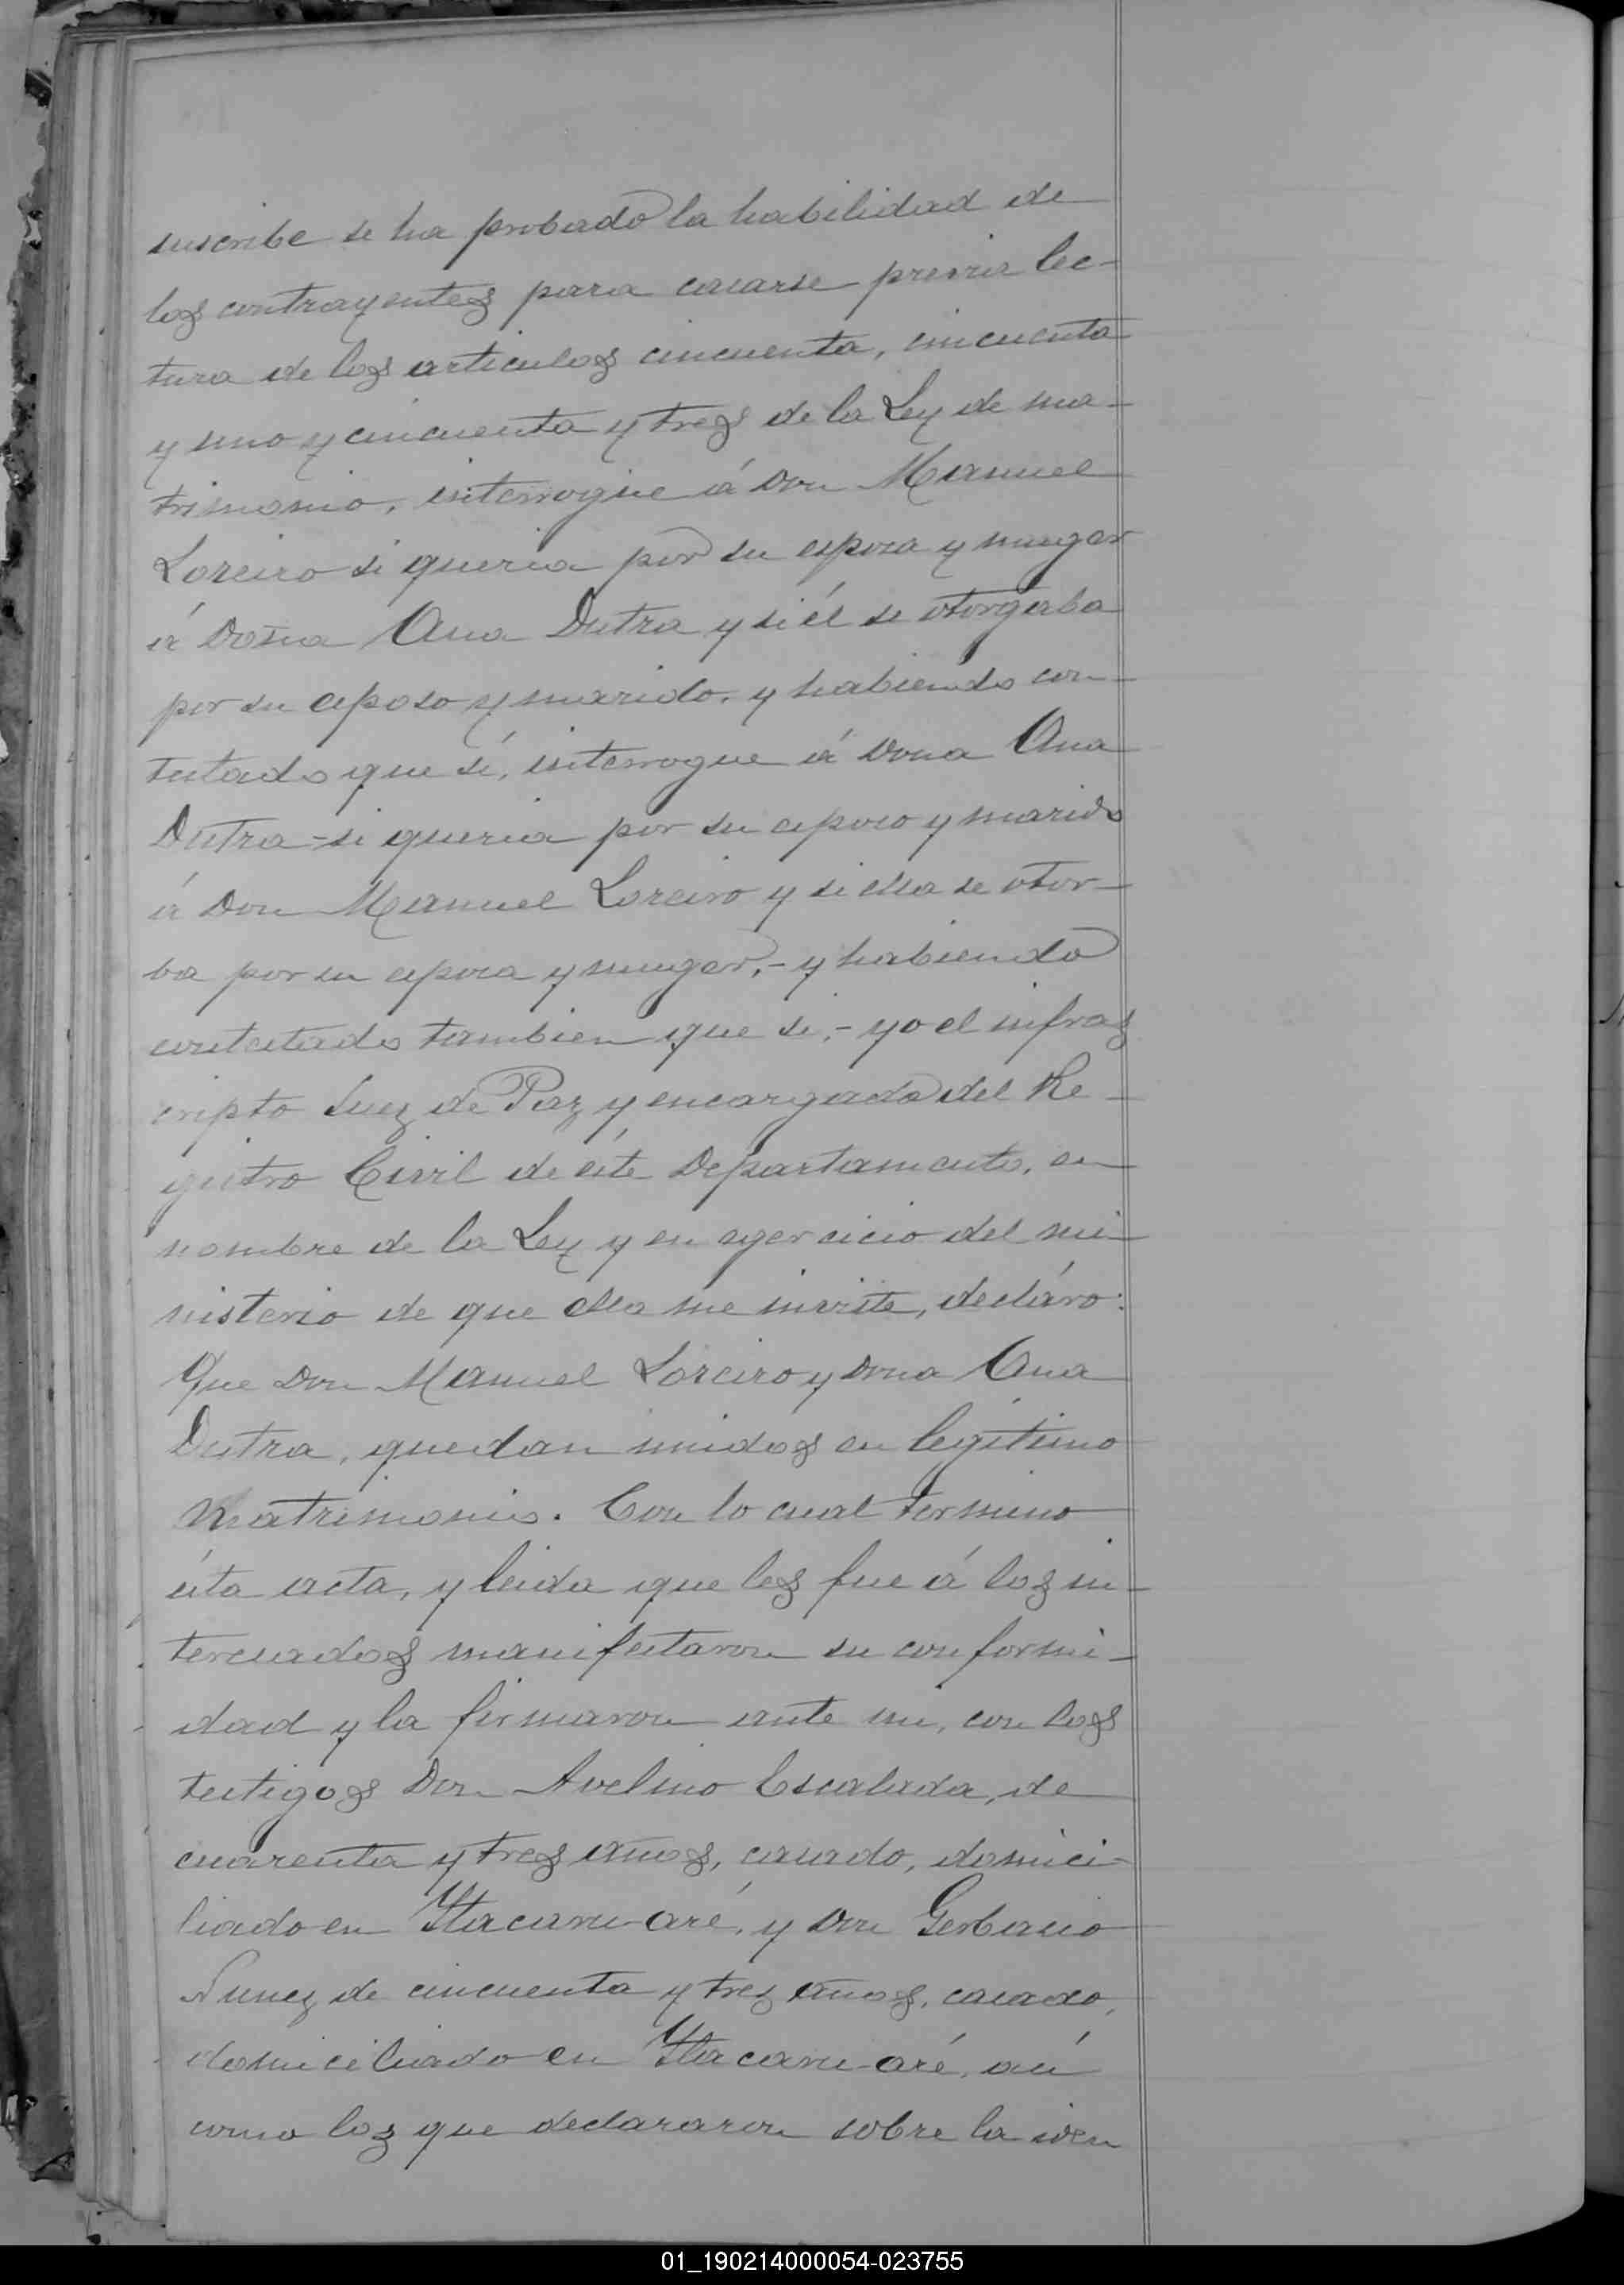 suscribe se ha probado la habilidad de
los contrayentes para casarse previa lec-
tura de los articulos cincuenta, cincuenta
y uno y cincuenta y tres de la Ley de ma-
trimonio, interrogue á Don Manuel
Loreiro si queria por su esposa y muger
á Doña Ana Dutra y si él se otorgaba
por su esposo y marido, y habiendo con-
testado que sí, interrogue á Dona Ana
Dutra - si queria por su esposo y marido
á Don Manuel Loreiro y si ella se otor-
ba por su esposa y muger, - y habiendo
contestado tambien que si, - yo el infras
cripto Juez de Paz y encargado del Re-
gistro Civil de éste Departamento, en
nombre de la Ley y en egercicio del mi-
nisterio de que ella me inviste, decláro:
Que Don Manuel Loreiro y Dona Ana
Dutra, quedan unidos en legítimo
Matrimonio. Con lo cual termino
ésta acta, y leida que les fue á los in-
teresados manifestaron su conformi-
dad y la firmaron ante mi, con los
testigos Don Avelino Escalada, de
cuarenta y tres años, casado, domici-
liado en Itacarú-aré, y Don Gerbacio
Nunez de cincuenta y tres años, casado,
domiciliado en Itacarú-aré, así
como los que declararon sobre la iden
01_190214000054-023755